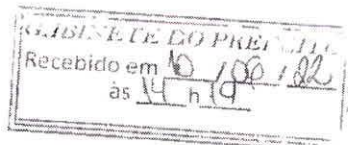 GABINETE DO PREFEITO
Recebido em 10 / 06 / 22
às 14 h 19